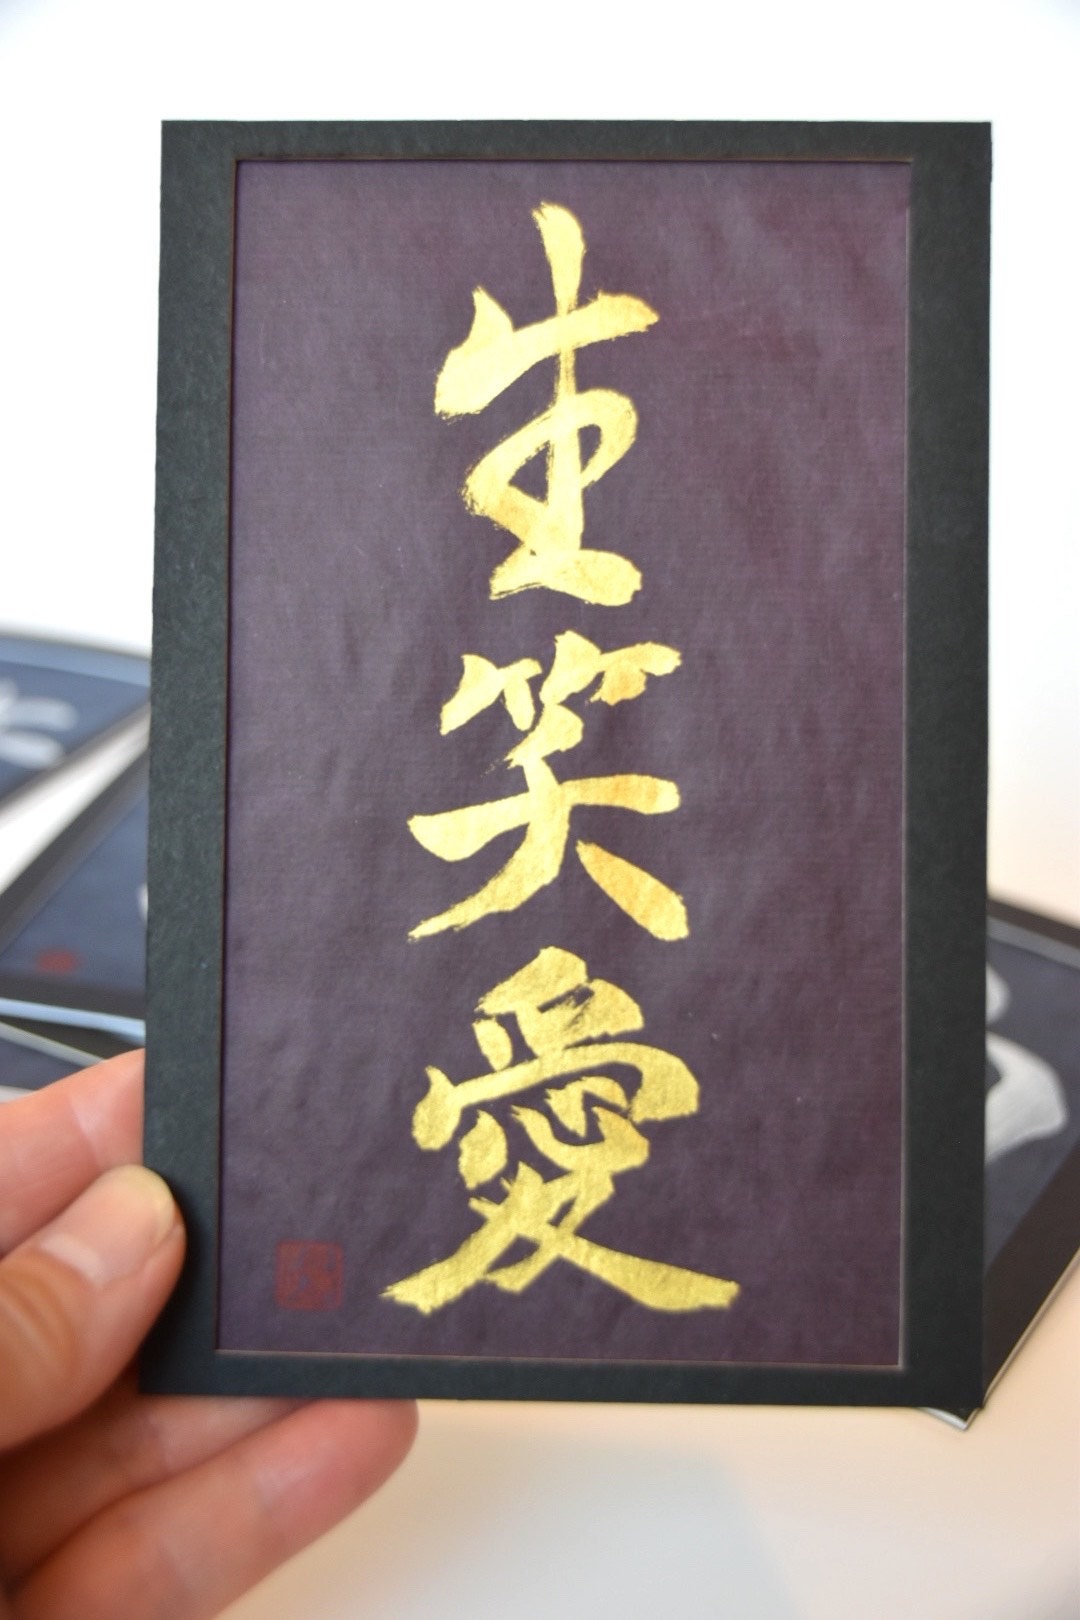 生笑愛